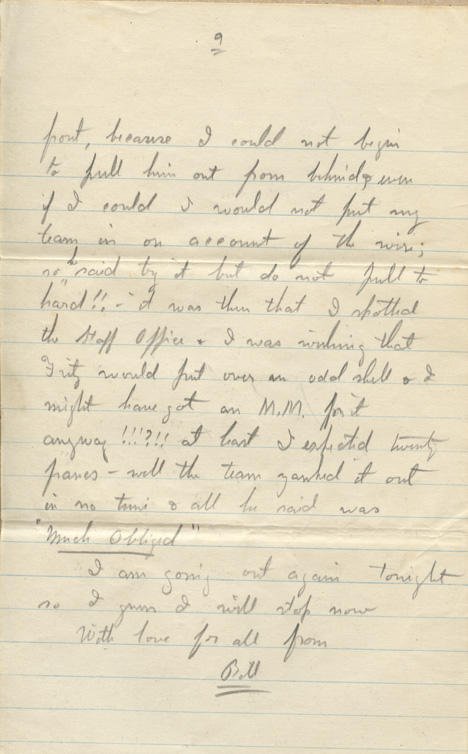 9
front, because I could not begin
to pull him out from behind, & even
if I could I would not put my
team in on account of the wire;
so "said try it but do not pull to
hard!! - it was then that I spotted
the Staff Office & I was wishing that
Fritz would put over an odd shell & I
might have got an M.M. for it
anyway !!!?!! at least I expected twenty
francs - well the team yanked it out
in no time & all he said was
"Much Obliged"
I am going out again tonight
so I guess I will stop now
With love for all from
Bill